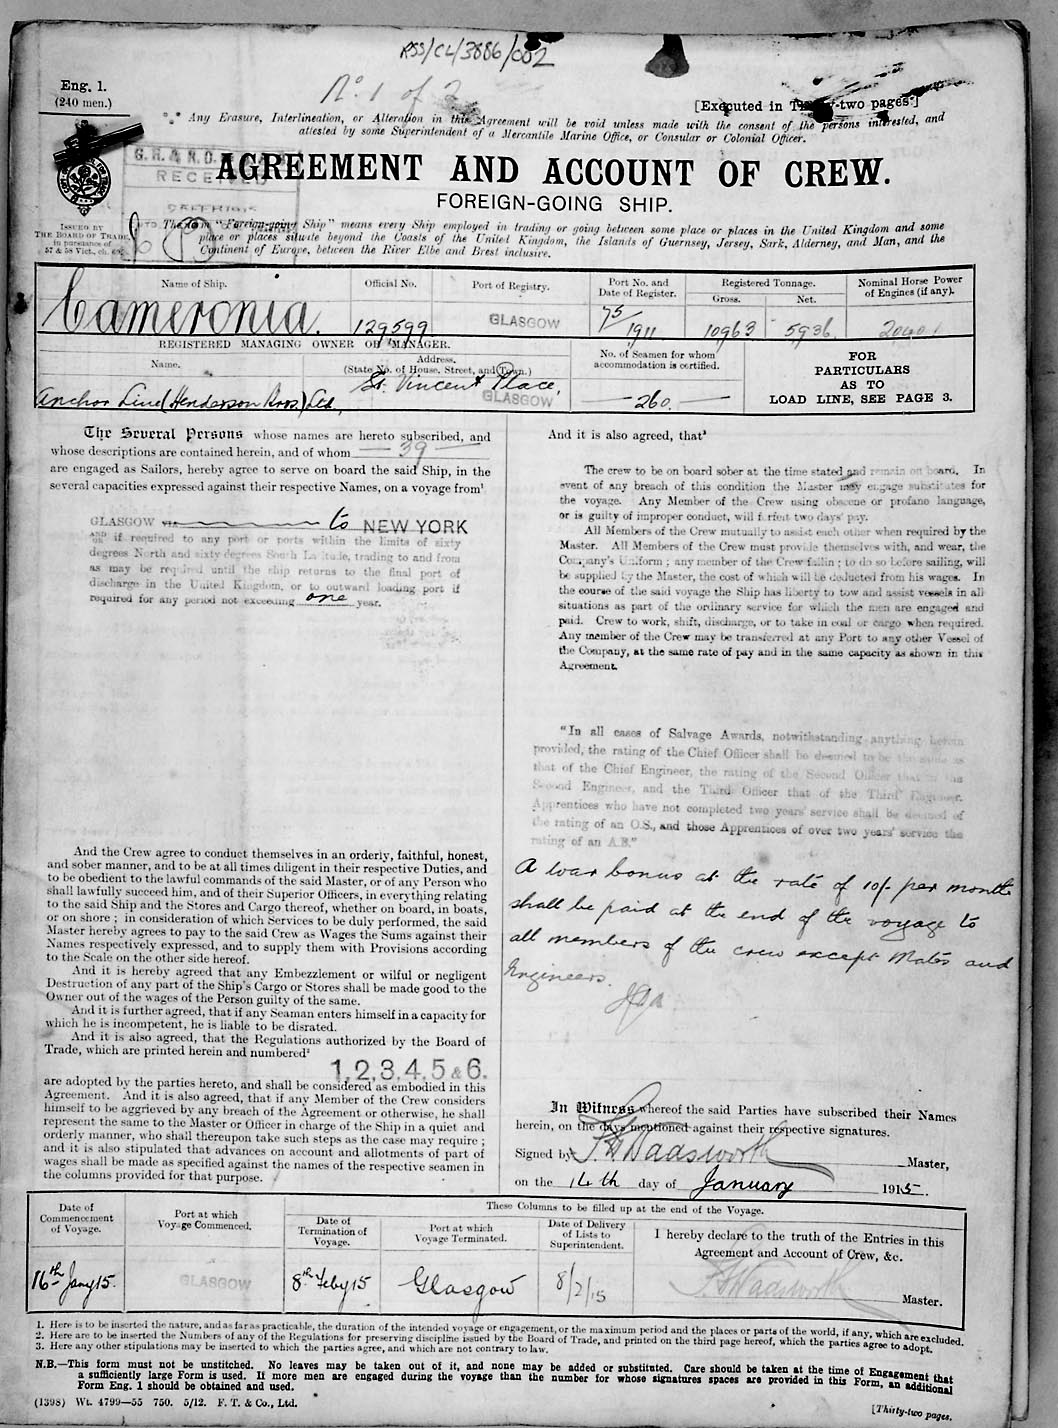 RSS/CL/3886/002
No. 1 of 2
Eng. 1.
(240 men.)
[Executed in Thirty-two pages.]
*** Any Erasure, Interlineation, or Alteration in this Agreement will be void unless made with the consent of the persons interested, and
attested by some Superintendent of a Mercantile Marine Office, or Consular or Colonial Officer.
RECEIVED
AGREEMENT AND ACCOUNT OF CREW.
FOREIGN-GOING SHIP.
ISSUED BY
THE BOARD OF TRADE,
in pursuance of
57 & 58 Vict., ch. 60.
The term "Foreign-going Ship" means every Ship employed in trading or going between some place or places in the United Kingdom and some
place or places situate beyond the Coasts of the United Kingdom, the Islands of Guernsey, Jersey, Sark, Alderney, and Man, and the
Continent of Europe, between the River Elbe and Brest inclusive.
Name of Ship. Official No. Port of Registry. Port No. and Date of Register. Registered Tonnage. Gross. Net. Nominal Horse Power of Engines (if any).
Cameronia. 129599 GLASGOW 75/1911 10963 5936
REGISTERED MANAGING OWNER OR MANAGER.
Name. Address. (State No. of House, Street, and Town.) No. of Seamen for whom accommodation is certified.
Anchor Line (Henderson Bros.) Ltd, St. Vincent Place, GLASGOW 260
FOR
PARTICULARS
AS TO
LOAD LINE, SEE PAGE 3.
The Several Persons whose names are hereto subscribed, and
whose descriptions are contained herein, and of whom 39
are engaged as Sailors, hereby agree to serve on board the said Ship, in the
several capacities expressed against their respective Names, on a voyage from¹
GLASGOW via to NEW YORK
AND OR if required to any port or ports within the limits of sixty
degrees North and sixty degrees South Latitude, trading to and from
as may be required until the ship returns to the final port of
discharge in the United Kingdom, or to outward loading port if
required for any period not exceeding one year.
And the Crew agree to conduct themselves in an orderly, faithful, honest,
and sober manner, and to be at all times diligent in their respective Duties, and
to be obedient to the lawful commands of the said Master, or of any Person who
shall lawfully succeed him, and of their Superior Officers, in everything relating
to the said Ship and the Stores and Cargo thereof, whether on board, in boats,
or on shore; in consideration of which Services to be duly performed, the said
Master hereby agrees to pay to the said Crew as Wages the Sums against their
Names respectively expressed, and to supply them with Provisions according
to the Scale on the other side hereof.
And it is hereby agreed that any Embezzlement or wilful or negligent
Destruction of any part of the Ship's Cargo or Stores shall be made good to the
Owner out of the wages of the Person guilty of the same.
And it is further agreed, that if any Seaman enters himself in a capacity for
which he is incompetent, he is liable to be disrated.
And it is also agreed, that the Regulations authorized by the Board of
Trade, which are printed herein and numbered²
1,2,3,4,5 & 6.
are adopted by the parties hereto, and shall be considered as embodied in this
Agreement. And it is also agreed, that if any Member of the Crew considers
himself to be aggrieved by any breach of the Agreement or otherwise, he shall
represent the same to the Master or Officer in charge of the Ship in a quiet and
orderly manner, who shall thereupon take such steps as the case may require;
and it is also stipulated that advances on account and allotments of part of
wages shall be made as specified against the names of the respective seamen in
the columns provided for that purpose.
And it is also agreed, that³
The crew to be on board sober at the time stated and remain on board. In
event of any breach of this condition the Master may engage substitutes for
the voyage. Any Member of the Crew using obscene or profane language,
or is guilty of improper conduct, will forfeit two days' pay.
All Members of the Crew mutually to assist each other when required by the
Master. All Members of the Crew must provide themselves with, and wear, the
Company's Uniform; any member of the Crew failing to do so before sailing, will
be supplied by the Master, the cost of which will be deducted from his wages. In
the course of the said voyage the Ship has liberty to tow and assist vessels in all
situations as part of the ordinary service for which the men are engaged and
paid. Crew to work, shift, discharge, or to take in coal or cargo when required.
Any member of the Crew may be transferred at any Port to any other Vessel of
the Company, at the same rate of pay and in the same capacity as shown in this
Agreement.
"In all cases of Salvage Awards, notwithstanding anything herein
provided, the rating of the Chief Officer shall be deemed to be the same as
that of the Chief Engineer, the rating of the Second Officer that of the
Second Engineer, and the Third Officer that of the Third Engineer.
Apprentices who have not completed two years' service shall be deemed of
the rating of an O.S., and those Apprentices of over two years' service the
rating of an A.B."
A war bonus at the rate of 10/- per month
shall be paid at the end of the voyage to
all members of the crew except Mates and
Engineers.
In Witness whereof the said Parties have subscribed their Names
herein, on the days mentioned against their respective signatures.
Signed by Wadsworth Master,
on the 14th day of January 1915.
Date of Commencement of Voyage. Port at which Voyage Commenced. These Columns to be filled up at the end of the Voyage.
Date of Termination of Voyage. Port at which Voyage Terminated. Date of Delivery of Lists to Superintendent. I hereby declare to the truth of the Entries in this Agreement and Account of Crew, &c.
16th Jany 15. GLASGOW 8th Feby 15 Glasgow 8/2/15 Wadsworth Master.
1. Here is to be inserted the nature, and as far as practicable, the duration of the intended voyage or engagement, or the maximum period and the places or parts of the world, if any, which are excluded.
2. Here are to be inserted the Numbers of any of the Regulations for preserving discipline issued by the Board of Trade, and printed on the third page hereof, which the parties agree to adopt.
3. Here any other stipulations may be inserted to which the parties agree, and which are not contrary to law.
N.B.—This form must not be unstitched. No leaves may be taken out of it, and none may be added or substituted. Care should be taken at the time of Engagement that
a sufficiently large Form is used. If more men are engaged during the voyage than the number for whose signatures spaces are provided in this Form, an additional
Form Eng. 1 should be obtained and used.
(1398) Wt. 4799—55 750. 5/12. F. T. & Co., Ltd.
[Thirty-two pages.